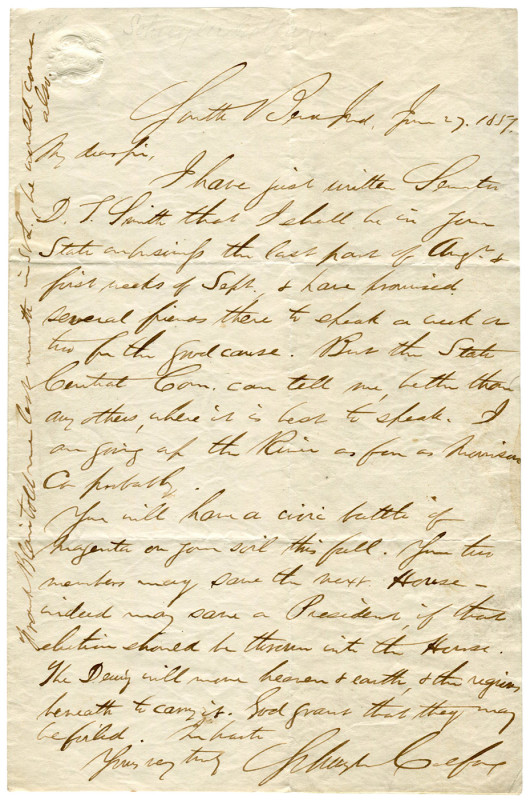 South Bend Ind, June 27. 1859.
My dear Sir,
I have just written Senator
D. T. Smith that I shall be in your
State on the last part of Augt. &
first weeks of Sept, & have promised
several friends there to speak a week or
two for the good cause. But the State
Central Com. can tell me, better than
any others, where it is best to speak. I
am going up the River as far as Morrison
Co probably.
You will have a civic battle of
Magenta on your soil this fall. Your two
members may save the next House -
indeed may save a President, if that
election should be thrown into the House.
The Democ will move heaven & earth, & the regions
beneath to carry it. God grant that they may
be foiled. In haste
Yours very truly Schuyler Colfax
Frank Blair told me last month in St L he would come
also.